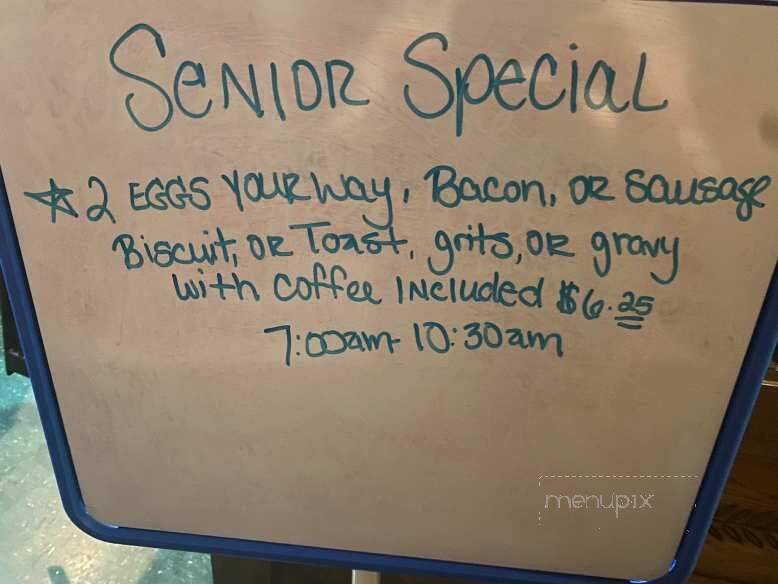 Senior Special
☆ 2 EGGS YOUR Way, Bacon, or Sausage
Biscuit, or Toast, grits, or gravy
with coffee Included $6.25
7:00am - 10:30am
menupix